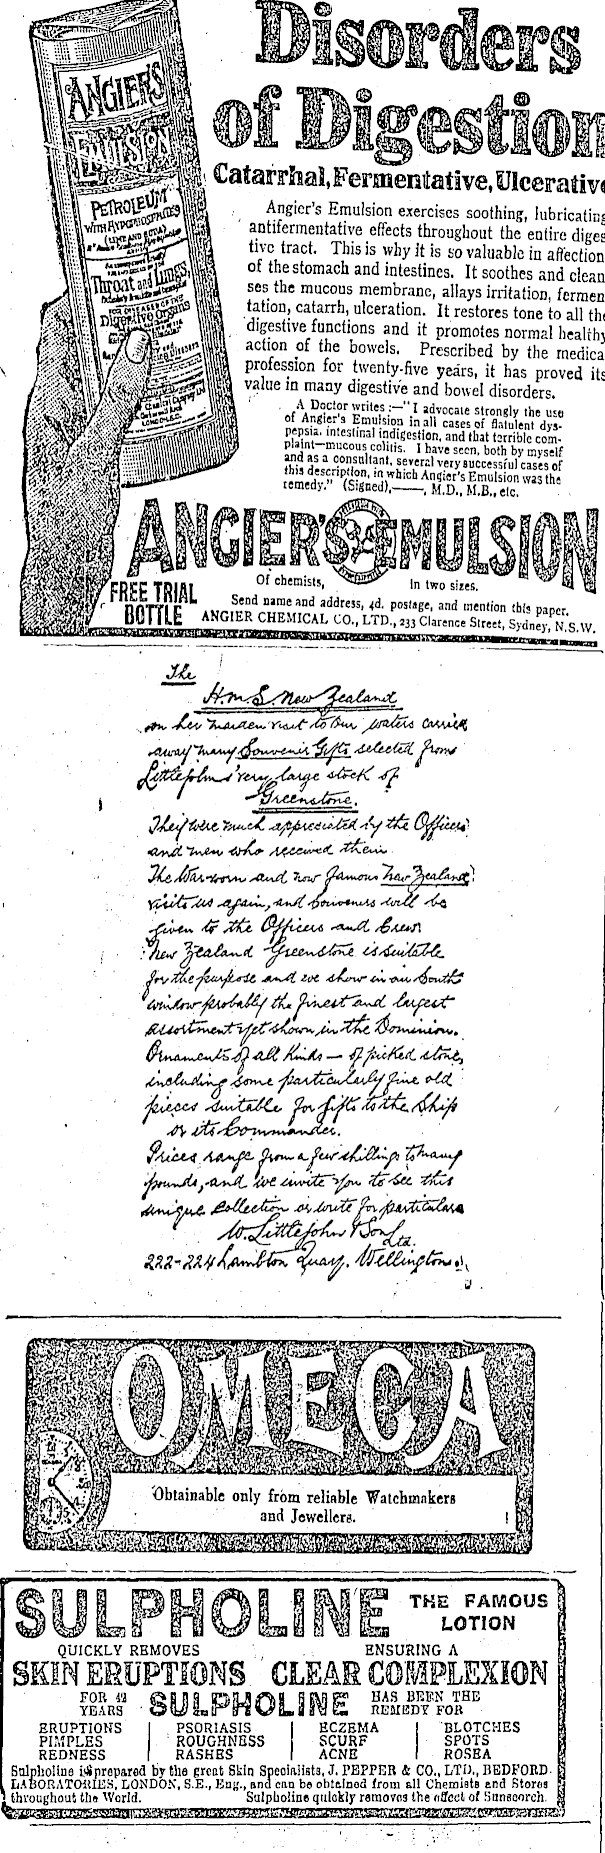 Disorders
of Digestion
Catarrhal, Fermentative, Ulcerative
ANGIER'S
EMULSION
PETROLEUM
WITH HYPOPHOSPHITES
(LIME AND SODA)
Throat and Lungs,
Digestive Organs
Angier's Emulsion exercises soothing, lubricating
antifermentative effects throughout the entire diges
tive tract. This is why it is so valuable in affection
of the stomach and intestines. It soothes and clean
ses the mucous membrane, allays irritation, fermen
tation, catarrh, ulceration. It restores tone to all the
digestive functions and it promotes normal healthy
action of the bowels. Prescribed by the medica
profession for twenty-five years, it has proved its
value in many digestive and bowel disorders.
A Doctor writes :—"I advocate strongly the use
of Angier's Emulsion in all cases of flatulent dys-
pepsia, intestinal indigestion, and that terrible com-
plaint—mucous colitis. I have seen, both by myself
and as a consultant, several very successful cases of
this description, in which Angier's Emulsion was the
remedy." (Signed),——, M.D., M.B., etc.
ANGIER'S EMULSION
Of chemists, in two sizes.
FREE TRIAL
BOTTLE
Send name and address, 4d. postage, and mention this paper.
ANGIER CHEMICAL CO., LTD., 233 Clarence Street, Sydney, N.S.W.
The
H.M.S. New Zealand
on her maiden visit to our waters carried
away many Souvenir Gifts selected from
Littlejohns' very large stock of
Greenstone.
They were much appreciated by the Officers
and men who received them
The War-worn and now famous New Zealand
visits us again, and Souvenirs will be
given to the Officers and Crew
New Zealand Greenstone is suitable
for the purpose and we show in our South
window probably the finest and largest
assortment yet shown in the Dominion.
Ornaments of all Kinds — of picked stone,
including some particularly fine old
pieces suitable for gifts to the Ship
or its Commander.
Prices range from a few shillings to many
pounds, and we invite you to see this
unique Collection or write for particulars
W. Littlejohn & Son Ltd.
222-224 Lambton Quay. Wellington.
OMEGA
Obtainable only from reliable Watchmakers
and Jewellers.
SULPHOLINE THE FAMOUS
LOTION
QUICKLY REMOVES ENSURING A
SKIN ERUPTIONS CLEAR COMPLEXION
FOR 42
YEARS SULPHOLINE HAS BEEN THE
REMEDY FOR
ERUPTIONS PSORIASIS ECZEMA BLOTCHES
PIMPLES ROUGHNESS SCURF SPOTS
REDNESS RASHES ACNE ROSEA
Sulpholine is prepared by the great Skin Specialists, J. PEPPER & CO., LTD., BEDFORD
LABORATORIES, LONDON, S.E., Eng., and can be obtained from all Chemists and Stores
throughout the World. Sulpholine quickly removes the effect of Sunscorch.